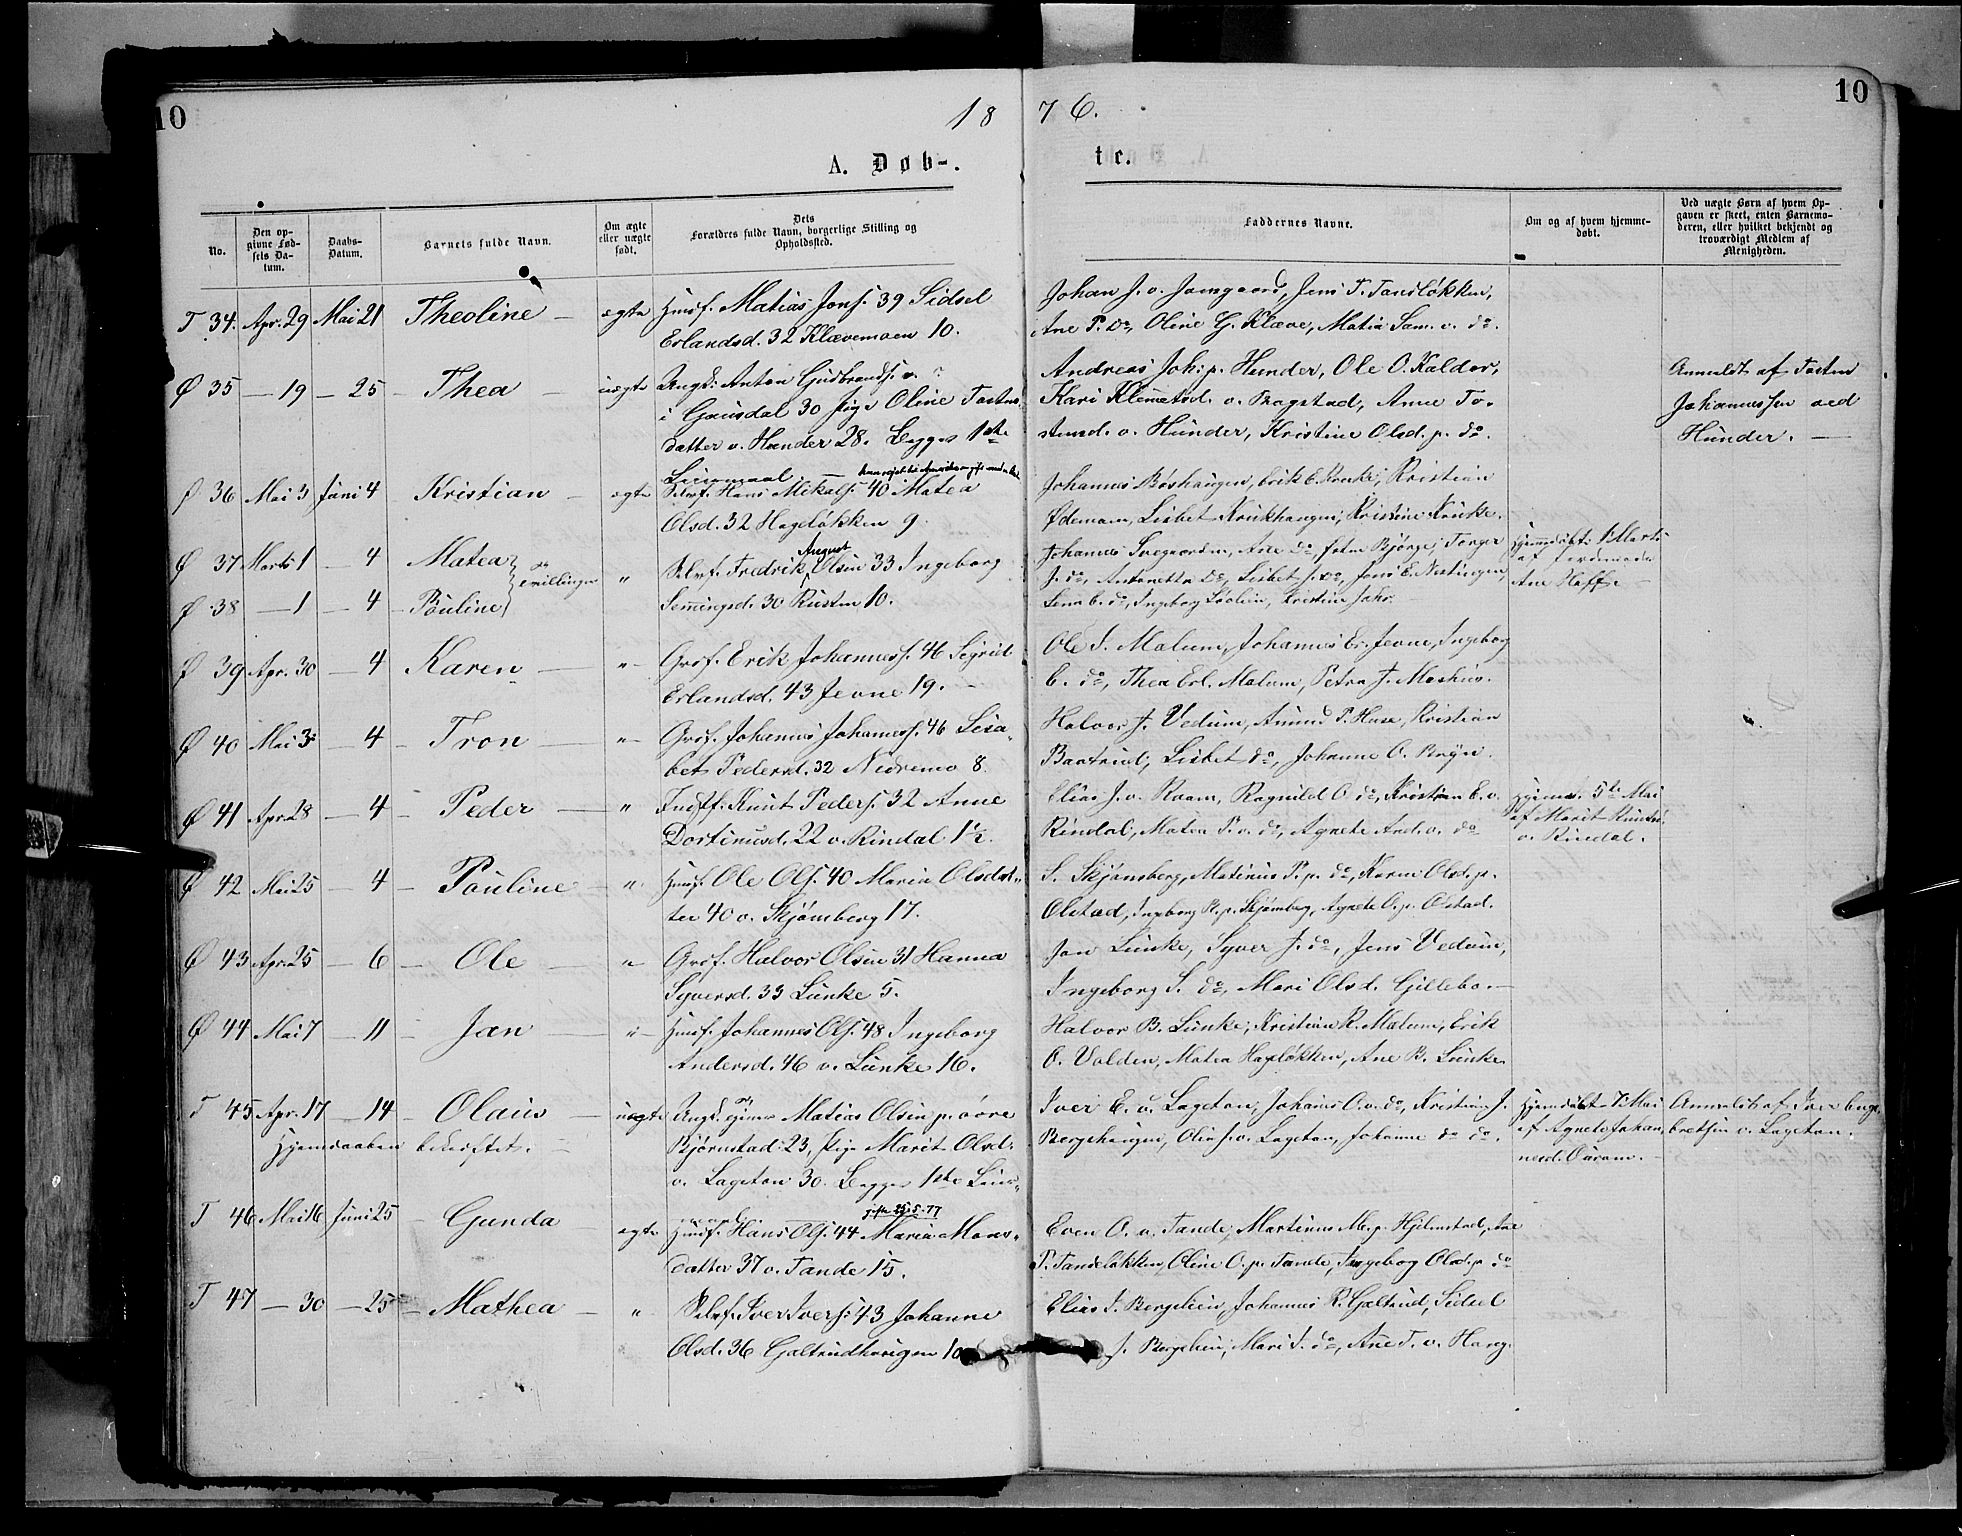 10
18
76.
10
A. Døb-
te.
No.
Den op-
givne Fød-
sels Da-
tum.
Daabs-
Datum.
Barnets fulde Navn.
Om ægte
eller uægte
født.
Dets
Forældres fulde Navn, borgerlige Stilling og
Opholdssted.
Faddernes Navne.
Om og af hvem hjemme-
døbt.
Ved uægte Børn af hvem Op-
gaven er skeet, enten Barnemo-
deren, eller hvilket bekjendt og
troværdigt Medlem af
Menigheden.
T 34. Apr. 29 Mai 21 Theoline — ægte Husf. Matias Jons. 39 Sidsel
Erlandsd. 32 Klævemoen 10.
Johan J. v. Jamgaard, Jens P. Tandløkken,
Ane P. do, Oline G. Klæve, Matia Sam. v. do.
Ø 35 — 19 — 25 — Thea — uægte Ungk. Anton Gudbrands. v.
i Gausdal 30 Pige Oline Tostens-
datter v. Hunder 28. Begges 1ste
Leiermaal.
Andreas Joh. p. Hunder, Ole O. Kaldor,
Kari Klemetsd. v. Bagstad, Anne To-
stensd. v. Hunder, Kristine Olsd. p. do.
Anmeldt af Tosten
Johannessen ved
Hunder. —
Ø 36 Mai 3 Juni 4 — Kristian — ægte Selvf. Hans Mikals. 40 Matea
Olsd. 32 Hageløkken 9.
Johannes Boshaugen, Erik E. Kruke, Kristian
Ødemam, Lisbet Krukhaugen, Kristine Kruke.
Ø 37 Marts 1 — 4 Matea
Ø 38 — 1 — 4 — Pauline
tvillinger
" Selvf. Fredrik August Olsen 33 Ingeborg
Semingsd. 30 Rusten 10.
Johannes Svegaarden, Ane do, Iver Bjørge, Torger
J. do, Antonetta do, Lisbet J. do, Jens E. Nestingen,
Lena E. do, Ingeborg Løolien, Kristine Jahr.
Hjemdøbt 1 Marts
af Jordemoder
Ane Hoff. —
Ø 39 Apr. 30 — 4 Karen — " Grdf. Erik Johanness. 46 Sigrid
Erlandsd. 43 Jevne 19. —
Ole S. Malum, Johannes Er. Jevne, Ingeborg
E. do, Thea Erl. Malum, Petra J. Moshus.
Ø 40 Mai 3 — 4 — Tron — " Grdf. Johannes Johaness. 46 Lisa-
bet Pedersd. 32 Nedremo 8.
Halvor J. Vedum, Amund P. Huse, Kristian
Baatrud, Lisbet do, Johanne O. Bryn.
Ø 41 Apr. 28 — 4 — Peder — " Indf. Knut Peders. 32 Anne
Dortinusd. 22 v. Rindal 1½.
Elias J. v. Raam, Ragnild O. do, Kristian E. v.
Rindal, Matea P. v. do, Agnete And. v. do
Hjemd. 5te Mai
af Marit Knutsd.
v. Rindal.
Ø 42 Mai 25 — 4 — Pauline — " Husf. Ole Ols. 40 Maria Olsdat-
ter 40 v. Skjønsberg 17.
S. Skjønsberg, Matinus P. p. do, Karen Olsd. p.
Olstad, Ingeborg R. p. Skjønsberg, Agnete O. p. Olstad.
Ø 43 Apr. 25 — 6 — Ole — " Grdf. Halvor Olsen 31 Hanna
Syversd. 33 Lunke 5.
Jon Lunke, Syver J. do, Jens Vedum,
Ingeborg S. do, Mari Olsd. Gillebo. —
Ø 44 Mai 7 — 11 — Jan — " Husf. Johannes Ols. 48 Ingeborg
Andersd. 46 v. Lunke 16.
Halvor B. Lunke, Kristian K. Malum, Erik
O. Volden, Matea Hageløkken, Ane B. Lunke.
T 45 Apr. 17 — 14 — Olaus — uægte Ungk. Matias Olsen p. øvre
Hjemdaaben bekræftet. —
Bjørnstad 23, Pige Marit Olsd.
v. Lageton 30. Begges 1ste Leier-
Iver E. v. Lageton, Johanes O. v. do, Kristian J.
Bergshaugen, Olia J. v. Lageton, Johanne do do.
Hjemdøbt 7 Mai
af Agnete Johan-
nesd. Ourom. —
Anmeldt af Iver Enge-
bretsen v. Lageton.
T 46 Mai 16 Juni 25 — Gunda — ægte Husf. Hans Ols. 44 Maria Mons-
gifte 25.5.77
datter 37 v. Tande 15.
Even O. v. Tande, Martinus M. p. Hjelmstad, Ane
P. Tandeløkken, Oline O. p. Tande, Ingeborg Olsd. p. do
T 47 — 30 — 25 — Mathea — " Selvf. Iver Ivers. 43 Johanne
Olsd. 36 Galtrudhaugen 10
Elias I. Bergslien, Johannes R. Galtrud, Sidsel
J. Bergslien, Mari I. do, Ane T. v. Haug.